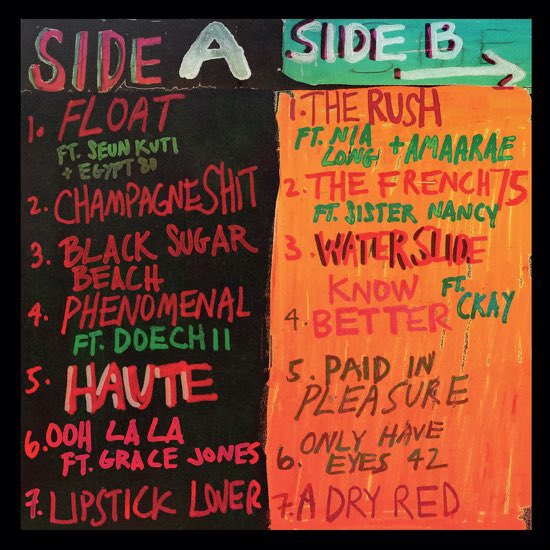 SIDE A
1. FLOAT
FT. SEUN KUTI
+ EGYPT 80
2. CHAMPAGNE SHIT
3. BLACK SUGAR
BEACH
4. PHENOMENAL
FT. DOECHII
5. HAUTE
6. OOH LA LA
FT. GRACE JONES
7. LIPSTICK LOVER
SIDE B
1. THE RUSH
FT. NIA
LONG + AMAARAE
2. THE FRENCH 75
FT. SISTER NANCY
3. WATERSLIDE
4. KNOW
BETTER FT.
CKAY
5. PAID IN
PLEASURE
6. ONLY HAVE
EYES 42
7. A DRY RED